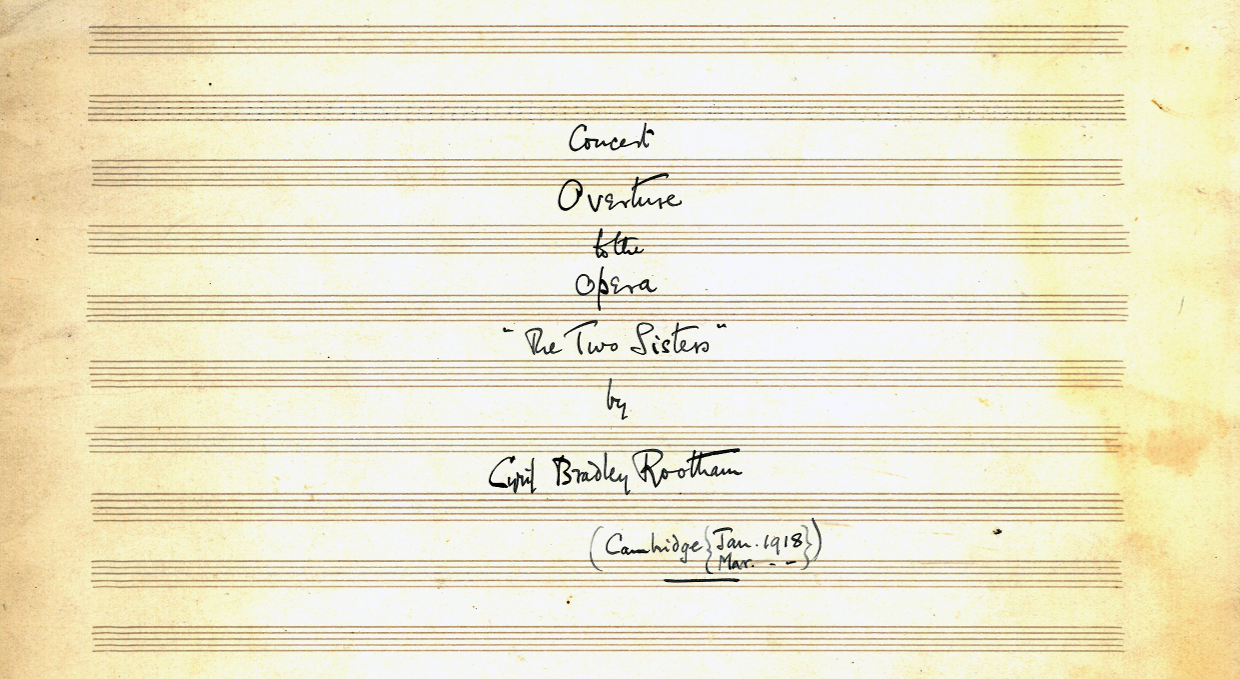 Concert
Overture
to the
Opera
"The Two Sisters"
by
Cyril Bradley Rootham
(Cambridge {Jan. 1918})
{Mar. - -}